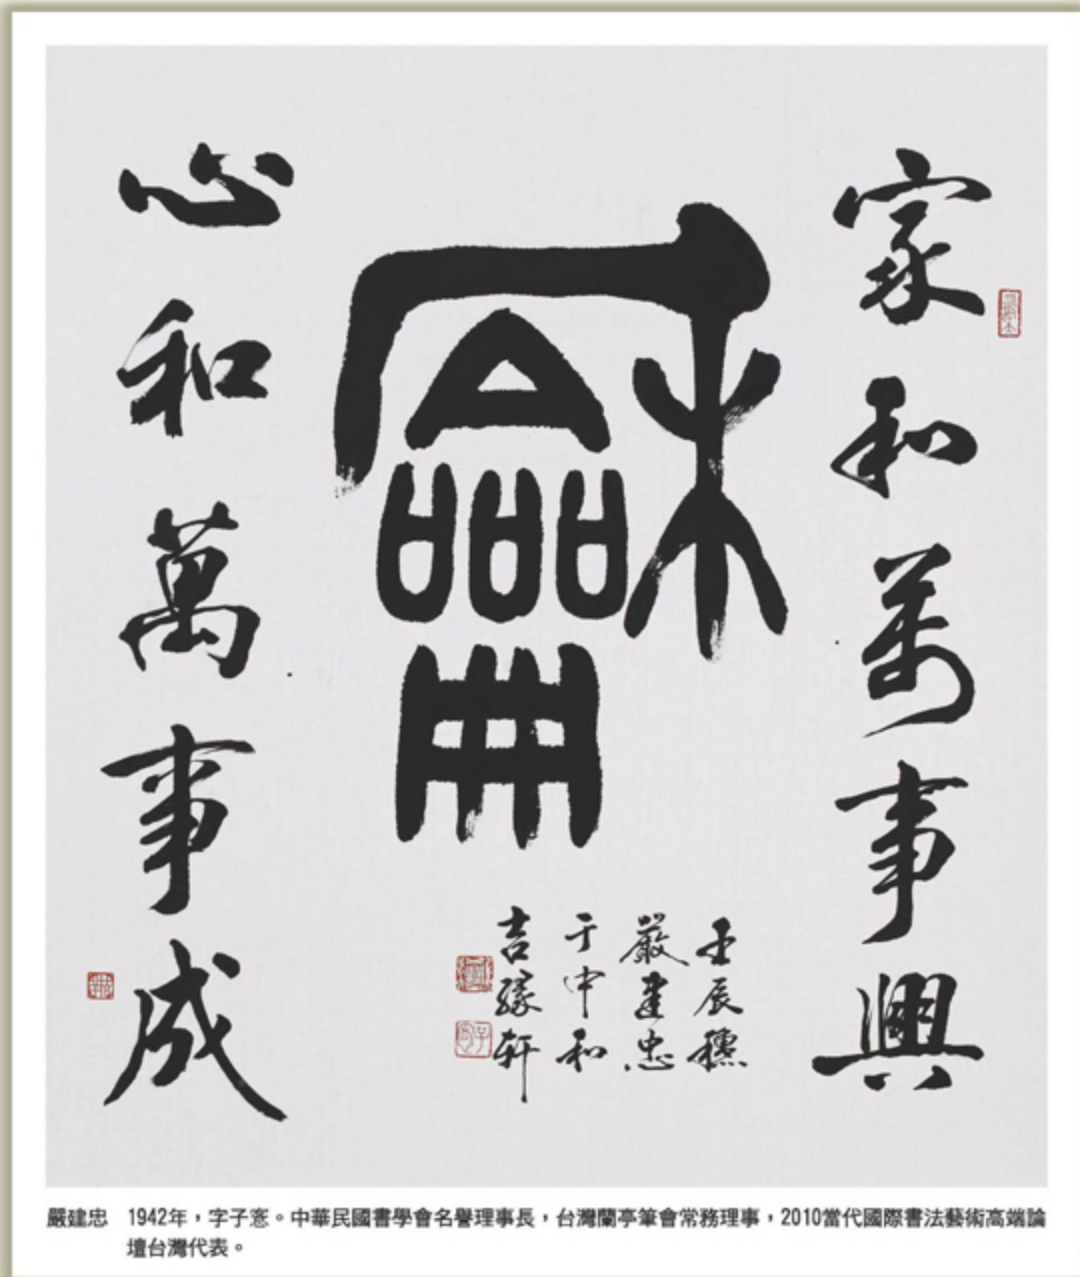 家和萬事興
龢
心和萬事成
壬辰
嚴建忠
于中和
吉緣軒
嚴建忠 1942年，字子。中華民國書學會名譽理事長，台灣蘭亭筆會常務理事，2010當代國際書法藝術高端論
壇台灣代表。